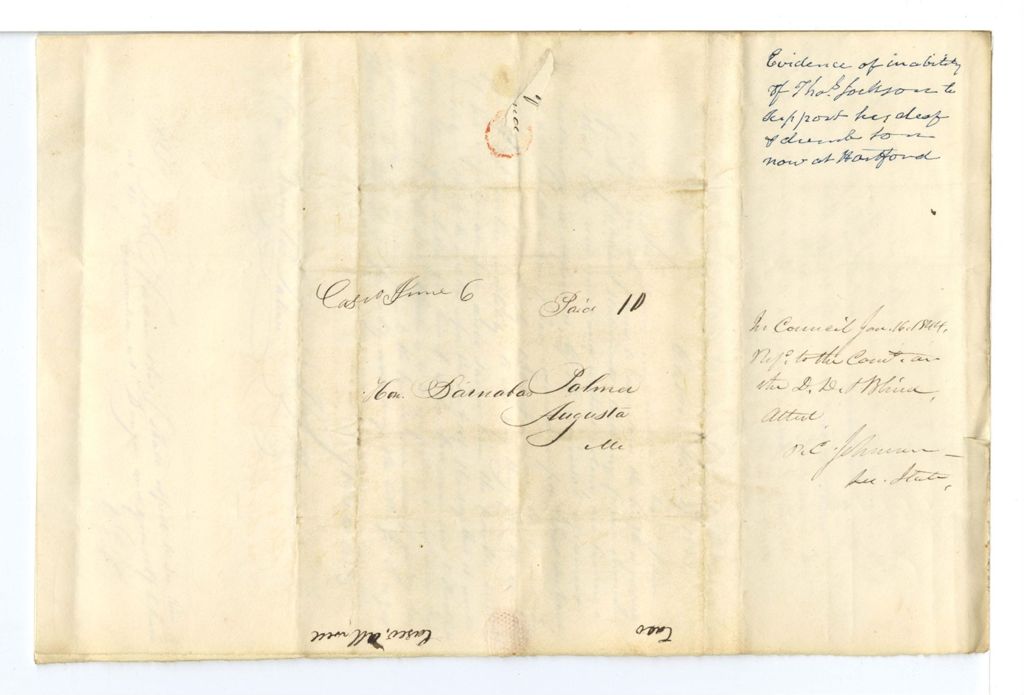 Evidence of inability
of Thos. Jackson to
support his deaf
& dumb son
now at Hartford
Casco June 6
Paid 10
Hon. Barnabas Palmer
Augusta
Me
In Council Jan. 16. 1844.
Ref. to the Comt. on
the D. D. & Blind,
Attest
P. C. Johnson
Sec. State,
Casco,